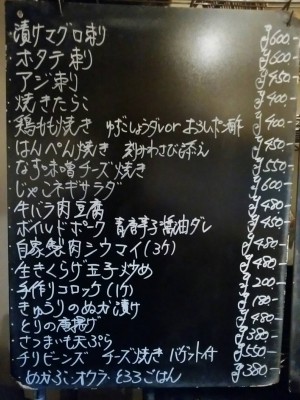 ・漬けマグロ刺 ¥600.-
・ホタテ刺 ¥600.-
・アジ刺 ¥450.-
・焼きたらこ ¥400.-
・鶏もも焼き ゆずこしょうダレor おろしポン酢 ¥400.-
・はんぺん焼き 刻みわさび添え ¥450.-
・なす味噌チーズ焼き ¥550.-
・じゃこネギサラダ ¥600.-
・牛バラ肉豆腐 ¥480.-
・ボイルドポーク 青唐辛子醤油ダレ ¥480.-
・自家製肉シウマイ(3ケ) ¥480.-
・生きくらげ玉子炒め ¥480.-
・手作りコロッケ(1ケ) ¥200.-
・きゅうりのぬか漬け ¥180.-
・とりの唐揚げ ¥480.-
・さつまいも天ぷら ¥380.-
・チリビーンズ チーズ焼き バゲット付 ¥550.-
・めかぶ・オクラ・とろろごはん ¥380.-